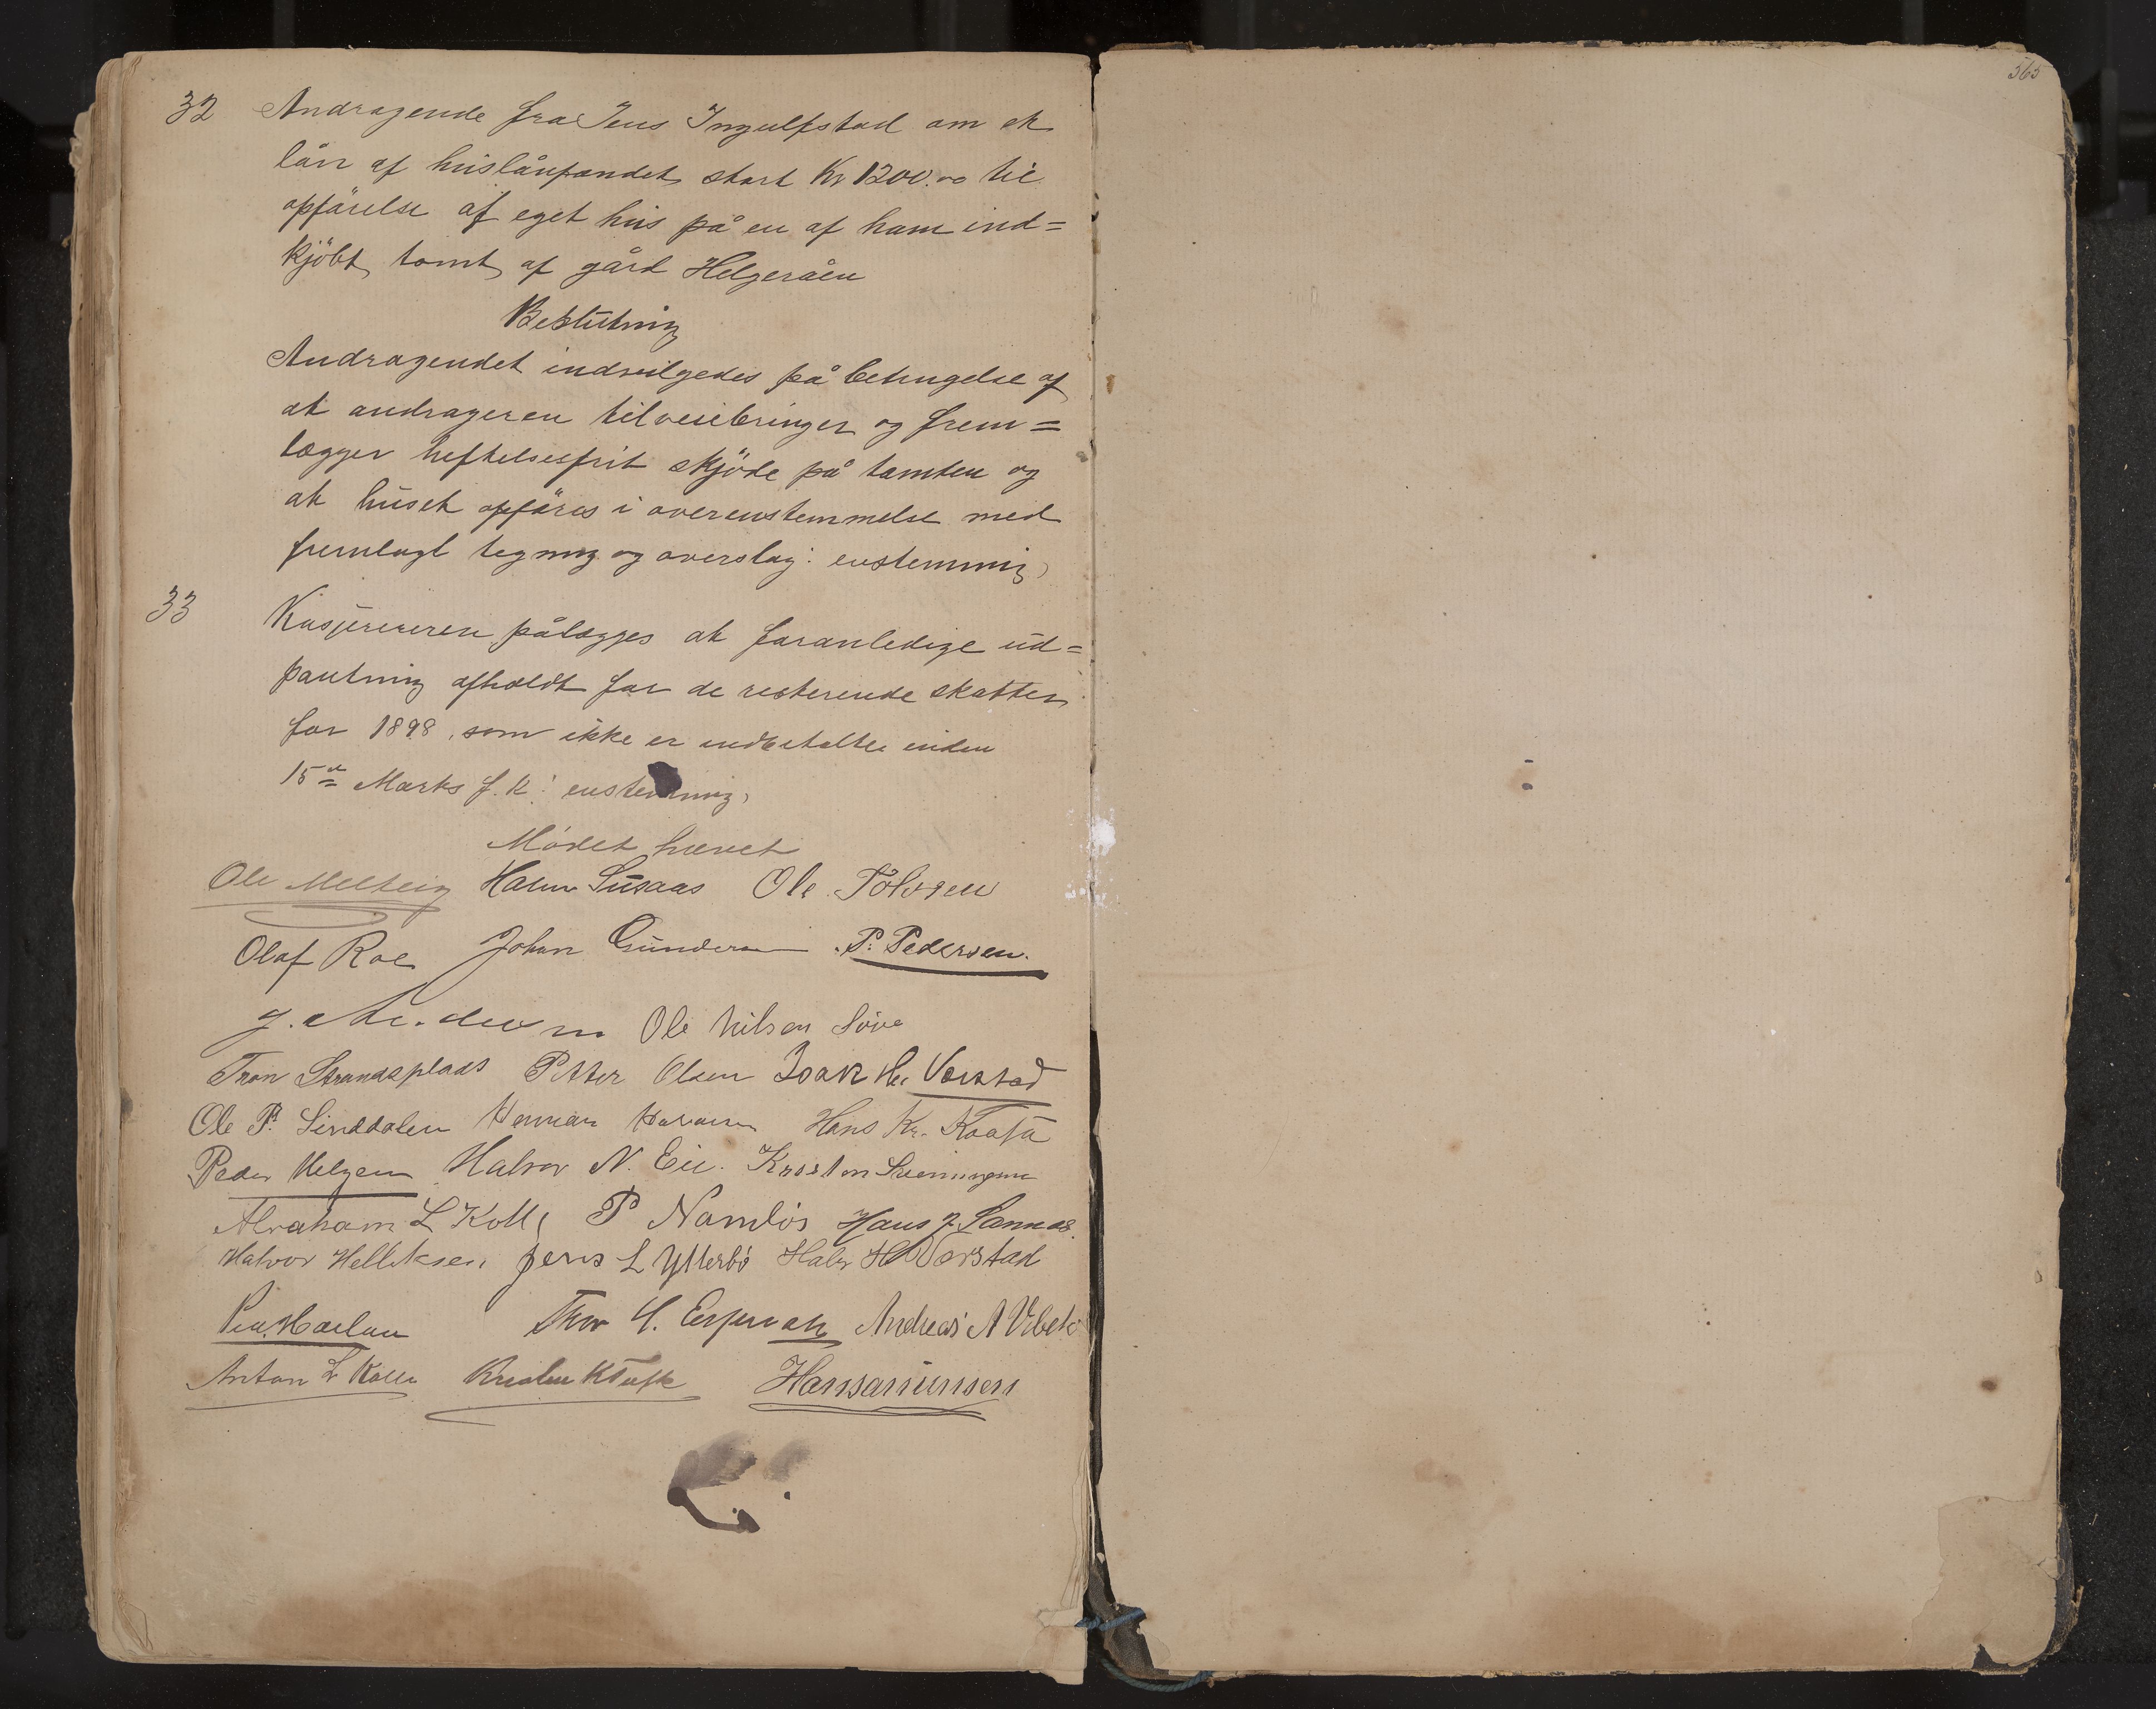 565
32 Andragende fra Jens Ingulfstad om et
lån af huslånfondet stort Kr 1200.00 til
opförelse af eget hus på en af ham ind=
kjöbt tomt af gård Helgeråen
Beslutning
Andragendet indvilgedes på betingelse af
at andrageren tilveiebringer og frem=
lægger heftelsesfrit skjöde på tomten og
at huset opföres i overenstemmelse med
fremlagt tegning og overslag: enstemmig
33 Kasjereren pålægges at foranledige ud=
pantning afholdt for de resterende skatter
for 1898, som ikke er indbetalte inden
15de Marts f. k: enstemmig,
Mödet hævet
Ole Melteig Halvor Susaas Ole Tolvsen
Olaf Roe Johan Gundersen P. Pedersen.
Ole Nilsen Söve
Tron Strandsplads Petter Olsen Isak Vorstad
Ole P. Linddalen Herman Hans Kr. Kaasa
Peder Helgen Halvor N. Eie. Kristen Sveinungsen
Abraham L Kolle P Namlös Hans J. Sannes.
Halvor Helleksen Jens L Ytterbö Halv H Vorstad
Thor H. Andreas A Vibeto
Anton L Kolle Kristen K Tufte Hans